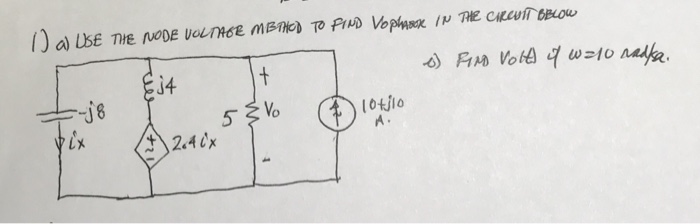 1) a) USE THE NODE VOLTAGE METHOD TO FIND VoPHASOR IN THE CIRCUIT BELOW
b) FIND Vo(t) if w=10 rad/sec.
j4
+
-j8
5
Vo
10+j10
A.
ix
+
-
2.4ix
-